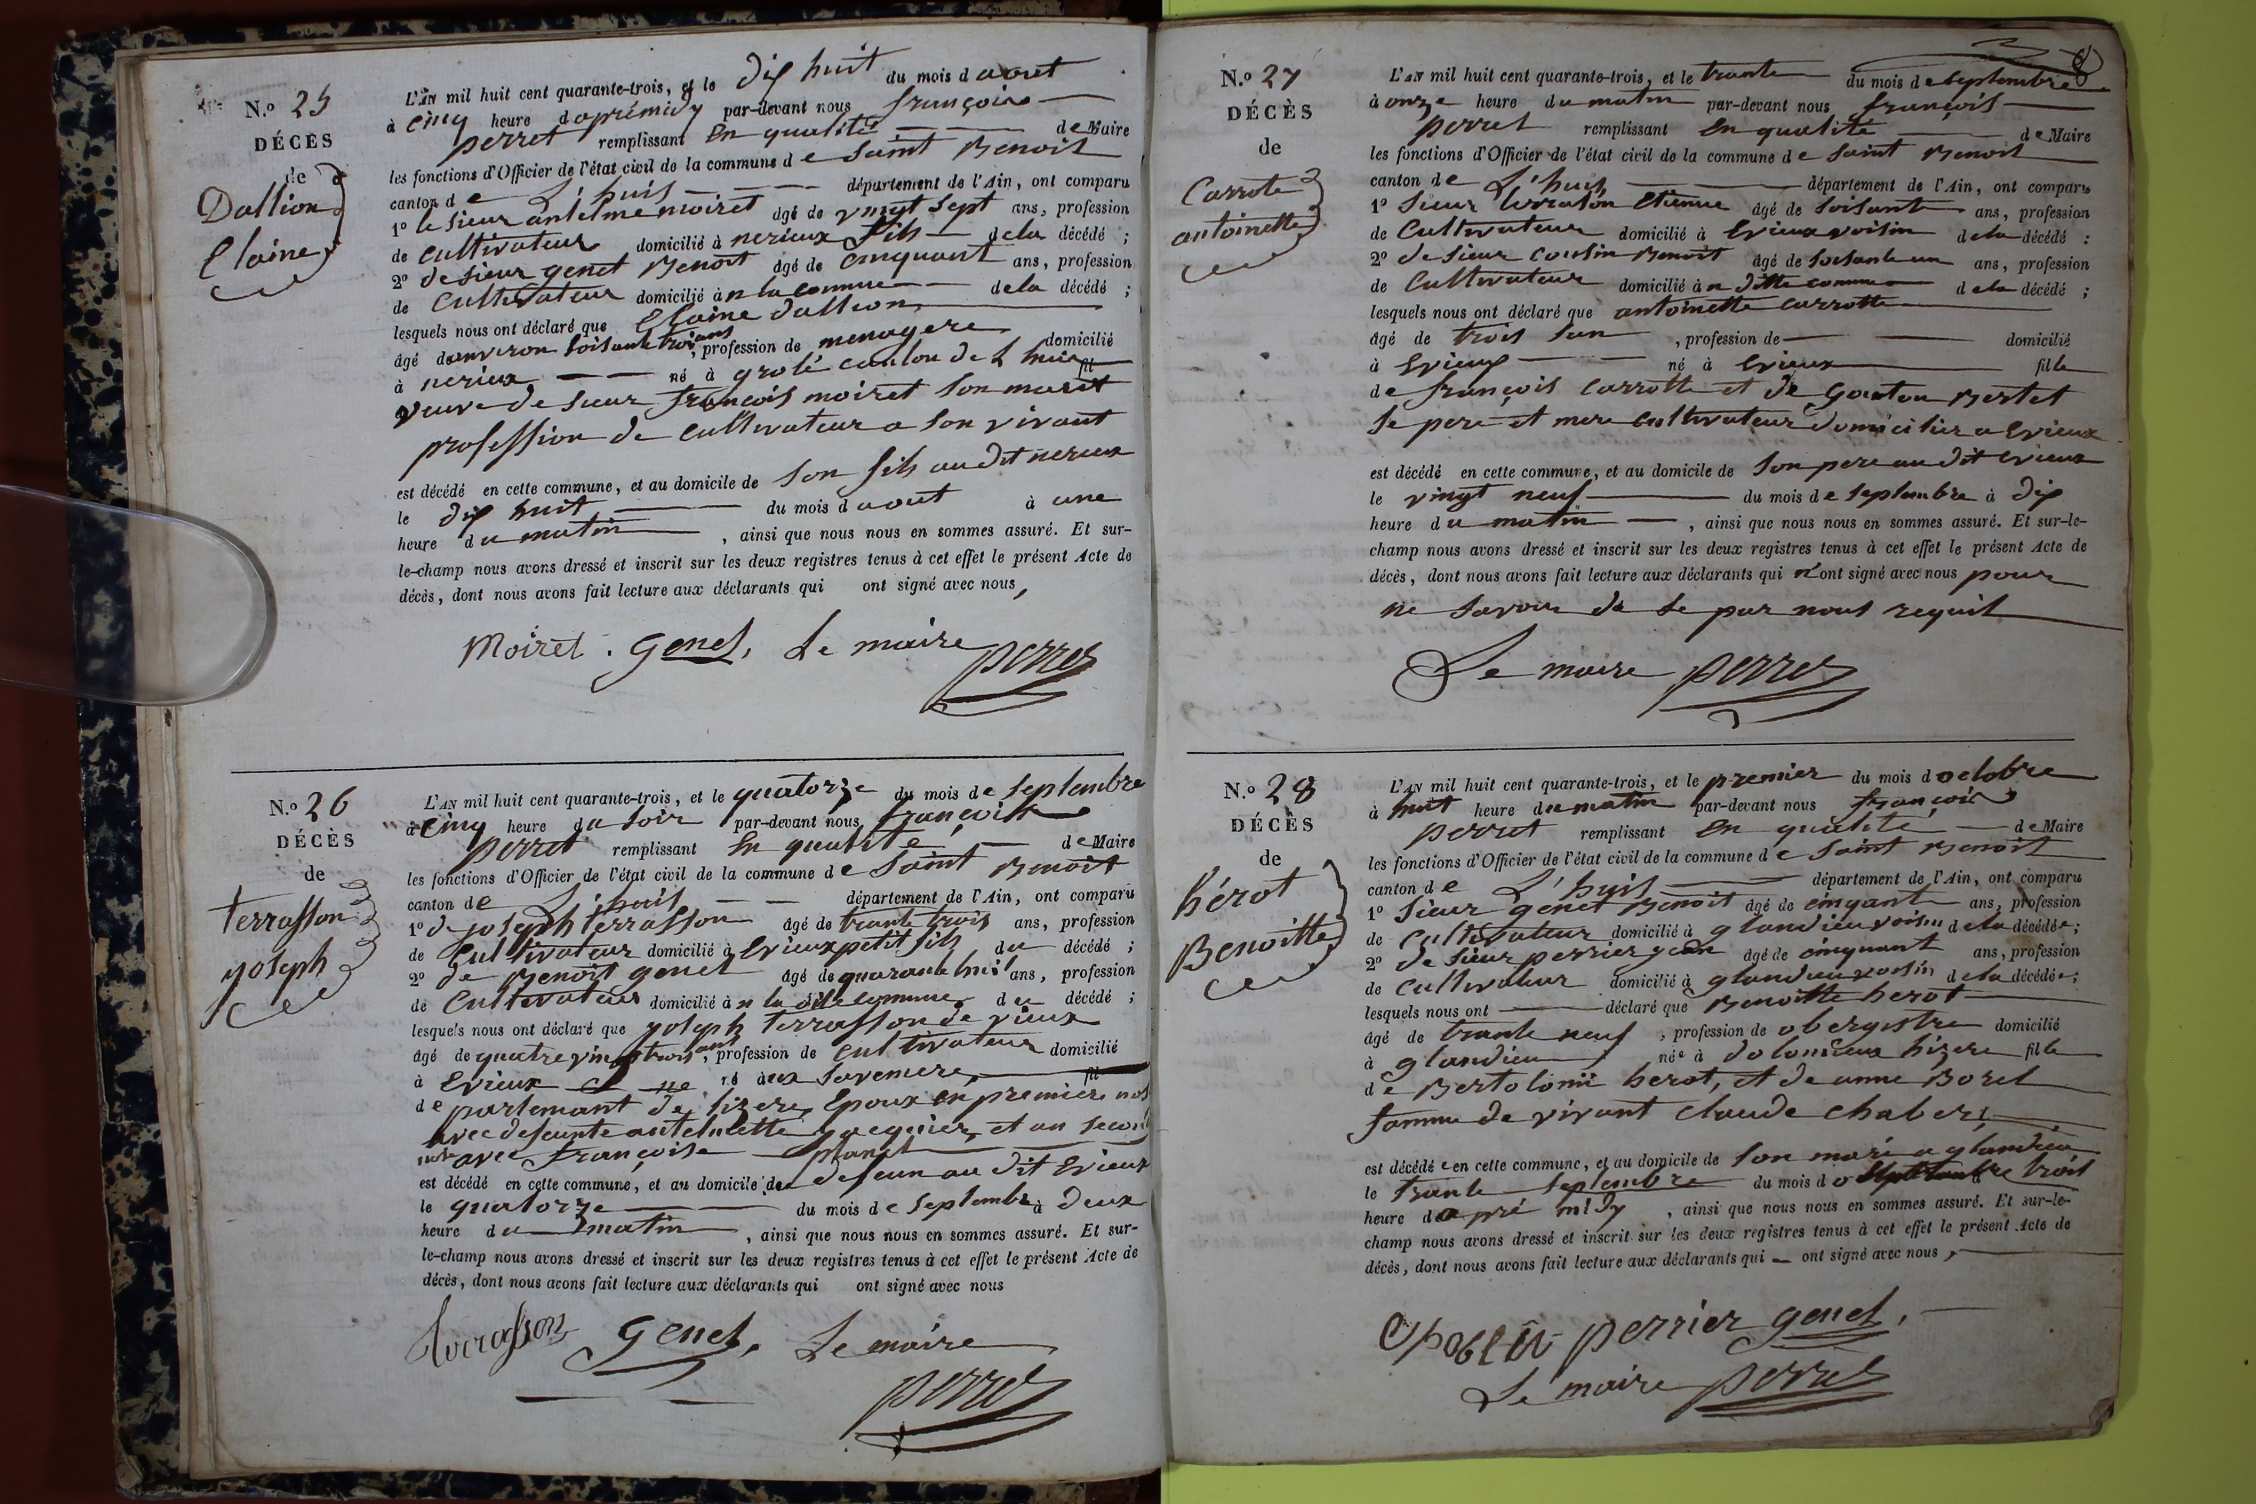 N.º 25
DÉCÈS
de
Dallion
Claine
L'AN mil huit cent quarante-trois, et le dix huit du mois d aout
à cinq heure d aprémidy par-devant nous françois
perret remplissant en qualité de Maire
les fonctions d'Officier de l'état civil de la commune de Saint Benoit
canton de L'huis département de l'Ain, ont comparu
1º le sieur antelme moiret âgé de vingt sept ans, profession
de cultivateur domicilié à nerieux fils de la décédé ;
2º de sieur genet Benoit âgé de cinquant ans, profession
de Cultivateur domicilié à n la commune de la décédé ;
lesquels nous ont déclaré que Claine dallion
âgé d anviron soisante trois ans, profession de menagere domicilié
à nerieux né à grolé canton de L huis fil
veuve de sieur françois moiret son marit
profession de cultivateur a son vivant
est décédé en cette commune, et au domicile de son fils au dit nerieux
le dix huit du mois d aout à une
heure du matin, ainsi que nous nous en sommes assuré. Et sur-
le-champ nous avons dressé et inscrit sur les deux registres tenus à cet effet le présent Acte de
décès, dont nous avons fait lecture aux déclarants qui ont signé avec nous,
Moiret. genet, Le maire
perret
N.º 26
DÉCÈS
de
terrasson
joseph
L'AN mil huit cent quarante-trois, et le quatorze du mois de septembre
à cinq heure du soir par-devant nous françois
perret remplissant en qualité de Maire
les fonctions d'Officier de l'état civil de la commune de Saint Benoit
canton de L'huis département de l'Ain, ont comparu
1º de joseph terrasson âgé de trante trois ans, profession
de Cultivateur domicilié à Evieux petit fils du décédé ;
2º de Benoit genet âgé de quarante huit ans, profession
de Cultivateur domicilié à n la dite commune du décédé ;
lesquels nous ont déclaré que joseph terrasson de vieux
âgé de quatre vingt trois ans, profession de cultivateur domicilié
à Evieux né aux savenere fil
de partemant de lizere, Epoux en premiere nos
avec defeunte antelmette et an second
nos avec françoise planet
est décédé en cette commune, et au domicile de defeun au dit Evieux
le quatorze du mois de septembre à deux
heure du matin, ainsi que nous nous en sommes assuré. Et sur-
le-champ nous avons dressé et inscrit sur les deux registres tenus à cet effet le présent Acte de
décès, dont nous avons fait lecture aux déclarants qui ont signé avec nous
terrasson genet, Le maire
perret
8
N.º 27
DÉCÈS
de
Carrote
antoinette
L'AN mil huit cent quarante-trois, et le trante du mois de septembre
à onze heure du matin par-devant nous françois
perret remplissant en qualité de Maire
les fonctions d'Officier de l'état civil de la commune de Saint Benoit
canton de L'huis département de l'Ain, ont comparu
1º Sieur terrason Etienne âgé de soisante ans, profession
de Cultivateur domicilié à Evieux voisin de la décédé ;
2º de sieur cousin Benoit âgé de soisante un ans, profession
de Cultivateur domicilié à n ditte commune de la décédé ;
lesquels nous ont déclaré que antoinette carrotte
âgé de trois san, profession de domicilié
à Evieux né à Evieux fille
de françois carrotte et de Gouton Bertet
se pere et mere cultivateur domicilier a Evieux
est décédé en cette commune, et au domicile de son pere au dit Evieux
le vingt neuf du mois de septembre à dix
heure du matin, ainsi que nous nous en sommes assuré. Et sur-le-
champ nous avons dressé et inscrit sur les deux registres tenus à cet effet le présent Acte de
décès, dont nous avons fait lecture aux déclarants qui n'ont signé avec nous pour
ne savoir de se par nous requit
Le maire perret
N.º 28
DÉCÈS
de
hérot
Benoitte
L'AN mil huit cent quarante-trois, et le premier du mois d octobre
à huit heure du matin par-devant nous françois
perret remplissant en qualité de Maire
les fonctions d'Officier de l'état civil de la commune de Saint Benoit
canton de L'huis département de l'Ain, ont comparu
1º Sieur genet Benoit âgé de cinqant ans, profession
de Cultivateur domicilié à glandieu voisin de la décédée ;
2º de sieur perrier jean âgé de cinquant ans, profession
de cultivateur domicilié à glandieu voisin de la décédée ;
lesquels nous ont déclaré que Benoitte herot
âgé de trante neuf, profession de obergistre domicilié
à glandieu née à dolomieux hizere fille
de Bertolomii herot, et de anne Borel
famme de vivant claude chaber
est décédée en cette commune, et au domicile de son mari a glandieu
le trante septembre du mois d o septembre trois
heure d apré midy, ainsi que nous nous en sommes assuré. Et sur-le-
champ nous avons dressé et inscrit sur les deux registres tenus à cet effet le présent Acte de
décès, dont nous avons fait lecture aux déclarants qui ont signé avec nous,
perrier genet,
Le maire perret